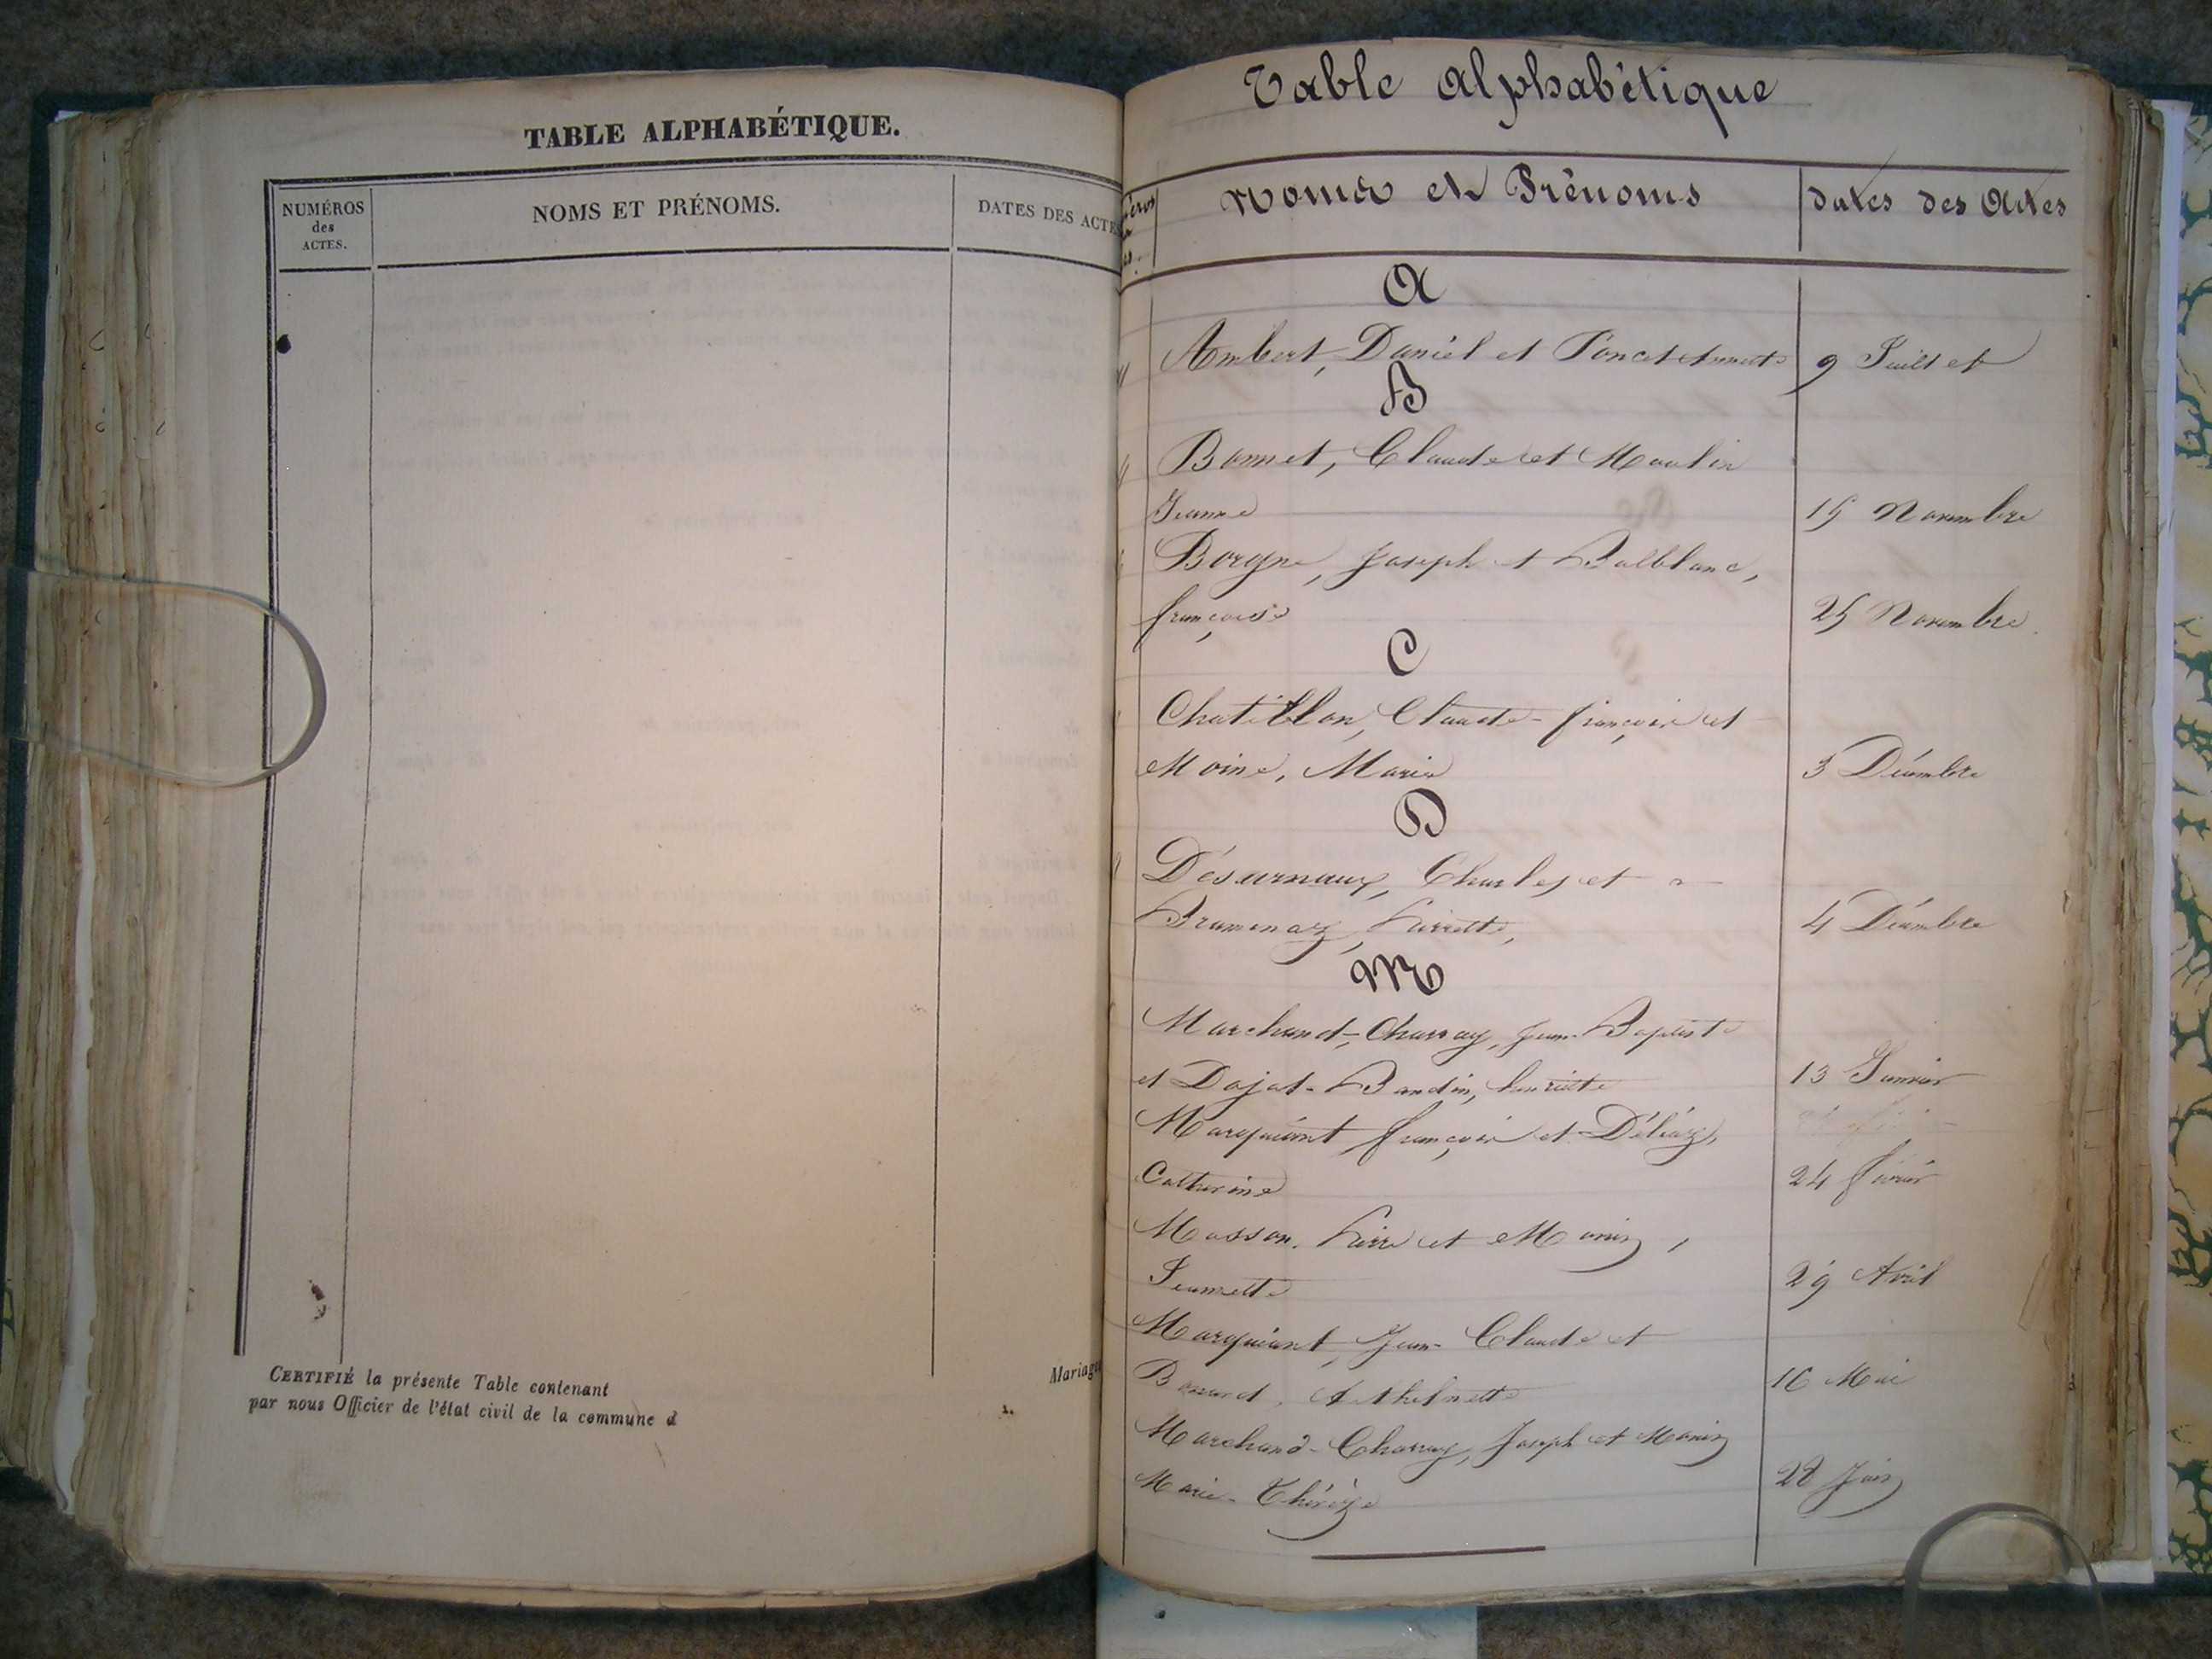 TABLE ALPHABÉTIQUE.
NUMÉROS
des
ACTES.
NOMS ET PRÉNOMS.
DATES DES ACTES
CERTIFIÉ la présente Table contenant
par nous Officier de l'état civil de la commune d
Mariage
Table Alphabétique
Noms et Prénoms
Dates des Actes
A
Ambert, Daniel et Poncet Annette 9 Juillet
B
Bonnet, Claude et Moulin
Jeanne 15 Novembre
Borgne, Joseph et Balblanc,
françoise 25 Novembre
C
Chatillon, Claude-françois et
Moine, Marie 3 Décembre
D
Désarnaux, Charles et
Pierrette, 4 Décembre
M
Marchand-Charvay, Jean-Baptiste
et Dajat-Bandin, henriette 13 Janvier
Marquiant françois et Déléaz,
Catherine 24 février
Masson, Pierre et Monin,
Jeannette 29 Avril
Marquiant, Jean-Claude et
16 Mai
Marchand-Charvay, Joseph et Monin
Marie-Thérèze 28 Juin